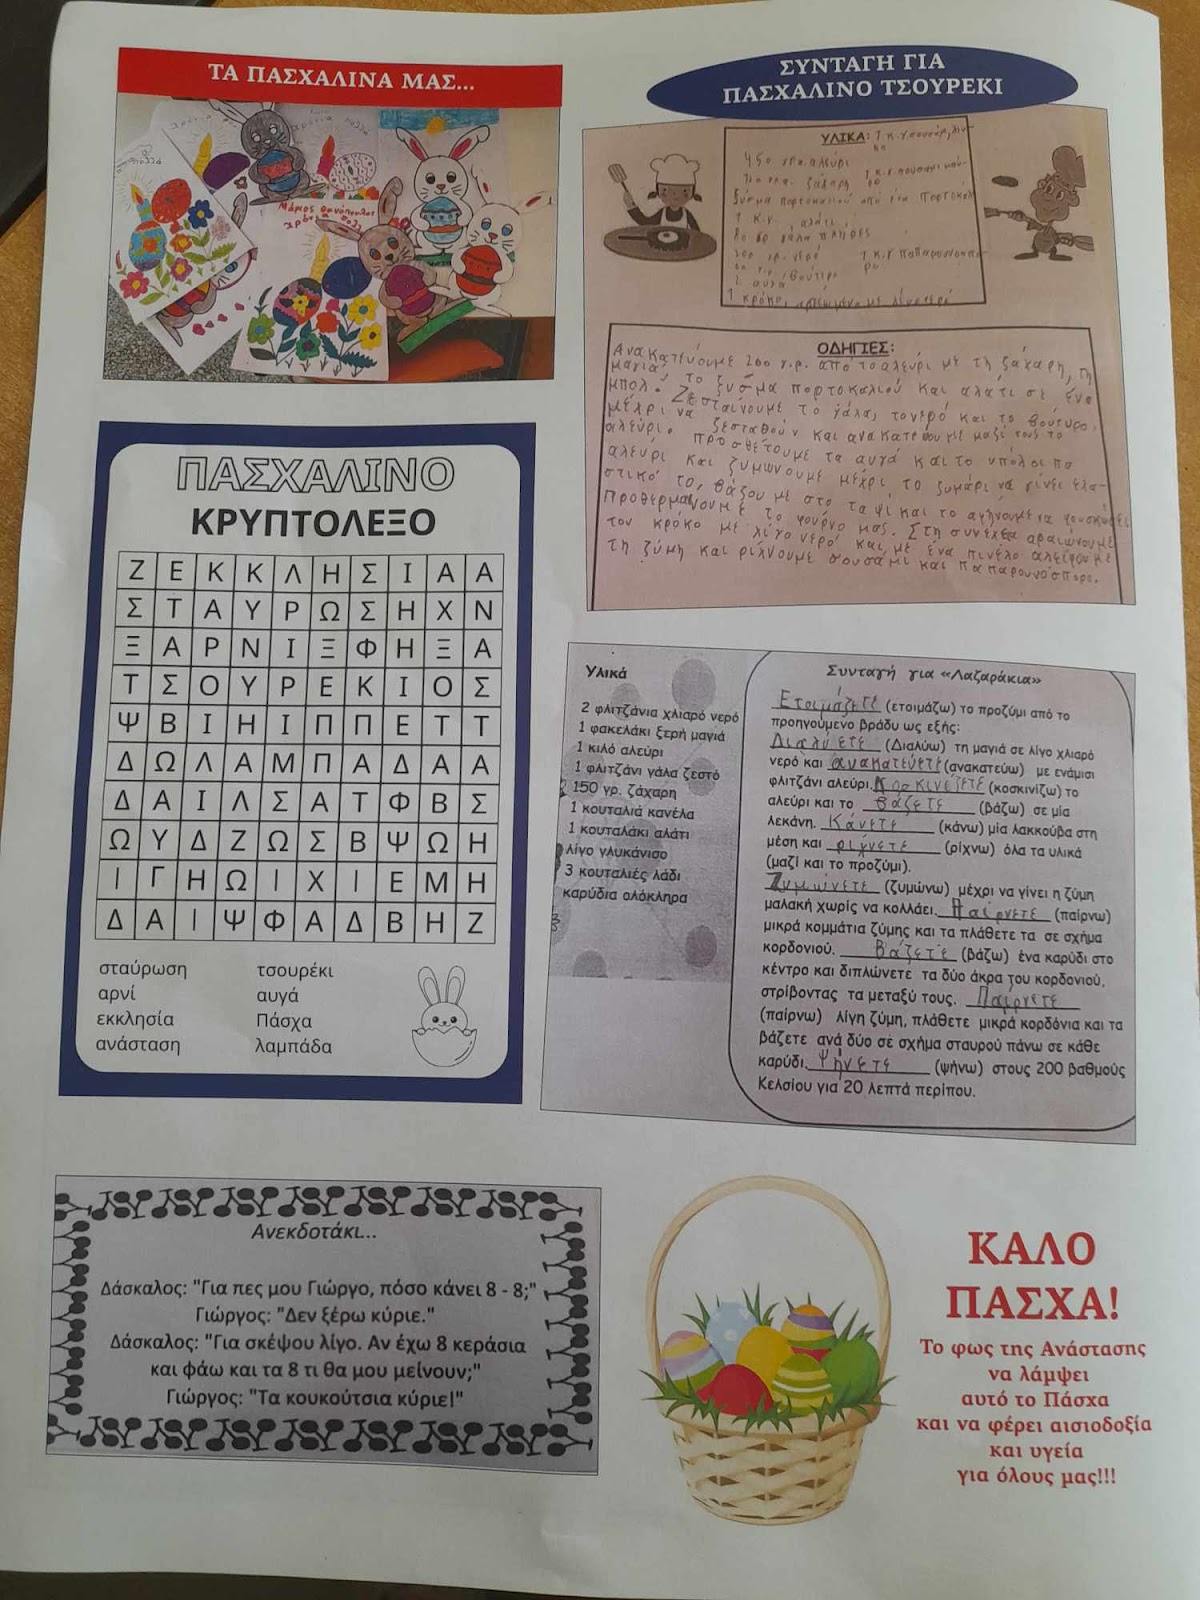 ΤΑ ΠΑΣΧΑΛΙΝΑ ΜΑΣ...
ΣΥΝΤΑΓΗ ΓΙΑ
ΠΑΣΧΑΛΙΝΟ ΤΣΟΥΡΕΚΙ
ΥΛΙΚΑ:
450 αλεύρι
ζάχαρη
ξύσμα πορτοκαλιού από ένα πορτοκάλ
1 κ.γ. αλάτι
γάλα πλήρες
νερό
βούτυρο
2 αυγά
1 κρόκο
ΟΔΗΓΙΕΣ:
Ανακατεύουμε 200 γ.ρ. από το αλεύρι με τη ζάχαρη, τη
μαγιά, το ξύσμα πορτοκαλιού και αλάτι σε ένα
μπολ. Ζεσταίνουμε το γάλα, το νερό και το βούτυρο,
μέχρι να ζεσταθούν και ανακατεύουμε μαζί τους το
αλεύρι. Προσθέτουμε τα αυγά και το υπόλοιπο
αλεύρι και ζυμώνουμε μέχρι το ζυμάρι να γίνει ελα-
στικό το, βάζουμε στο ταψί και το αφήνουμε να φουσκώσει
Προθερμαίνουμε το φούρνο μας. Στη συνέχεια αραιώνουμε
τον κρόκο με λίγο νερό και με ένα πινέλο αλείφουμε
τη ζύμη και ρίχνουμε σουσάμι και παπαρουνόσπορο.
ΠΑΣΧΑΛΙΝΟ
ΚΡΥΠΤΟΛΕΞΟ
Ζ Ε Κ Κ Λ Η Σ Ι Α Α
Σ Τ Α Υ Ρ Ω Σ Η Χ Ν
Ξ Α Ρ Ν Ι Ξ Φ Η Ξ Α
Τ Σ Ο Υ Ρ Ε Κ Ι Ο Σ
Ψ Β Ι Η Ι Π Π Ε Τ Τ
Δ Ω Λ Α Μ Π Α Δ Α Α
Δ Α Ι Λ Σ Α Τ Φ Β Σ
Ω Υ Δ Ζ Ω Σ Β Ψ Ω Η
Ι Γ Η Ω Ι Χ Ι Ε Μ Η
Δ Α Ι Ψ Φ Α Δ Β Η Ζ
σταύρωση τσουρέκι
αρνί αυγά
εκκλησία Πάσχα
ανάσταση λαμπάδα
Υλικά
2 φλιτζάνια χλιαρό νερό
1 φακελάκι ξερή μαγιά
1 κιλό αλεύρι
1 φλιτζάνι γάλα ζεστό
150 γρ. ζάχαρη
1 κουταλιά κανέλα
1 κουταλάκι αλάτι
λίγο γλυκάνισο
3 κουταλιές λάδι
καρύδια ολόκληρα
Συνταγή για «Λαζαράκια»
Ετοιμάζετε (ετοιμάζω) το προζύμι από το
προηγούμενο βράδυ ως εξής:
Διαλύετε (Διαλύω) τη μαγιά σε λίγο χλιαρό
νερό και ανακατεύετε (ανακατεύω) με ενάμισι
φλιτζάνι αλεύρι. Κοσκινίζετε (κοσκινίζω) το
αλεύρι και το βάζετε (βάζω) σε μία
λεκάνη. Κάνετε (κάνω) μία λακκούβα στη
μέση και ρίχνετε (ρίχνω) όλα τα υλικά
(μαζί και το προζύμι).
Ζυμώνετε (ζυμώνω) μέχρι να γίνει η ζύμη
μαλακή χωρίς να κολλάει. Παίρνετε (παίρνω)
μικρά κομμάτια ζύμης και τα πλάθετε τα σε σχήμα
κορδονιού. Βάζετε (βάζω) ένα καρύδι στο
κέντρο και διπλώνετε τα δύο άκρα του κορδονιού,
στρίβοντας τα μεταξύ τους. Παίρνετε
(παίρνω) λίγη ζύμη, πλάθετε μικρά κορδόνια και τα
βάζετε ανά δύο σε σχήμα σταυρού πάνω σε κάθε
καρύδι. Ψήνετε (ψήνω) στους 200 βαθμούς
Κελσίου για 20 λεπτά περίπου.
Ανεκδοτάκι...
Δάσκαλος: "Για πες μου Γιώργο, πόσο κάνει 8 - 8;"
Γιώργος: "Δεν ξέρω κύριε."
Δάσκαλος: "Για σκέψου λίγο. Αν έχω 8 κεράσια
και φάω και τα 8 τι θα μου μείνουν;"
Γιώργος: "Τα κουκούτσια κύριε!"
ΚΑΛΟ
ΠΑΣΧΑ!
Το φως της Ανάστασης
να λάμψει
αυτό το Πάσχα
και να φέρει αισιοδοξία
και υγεία
για όλους μας!!!